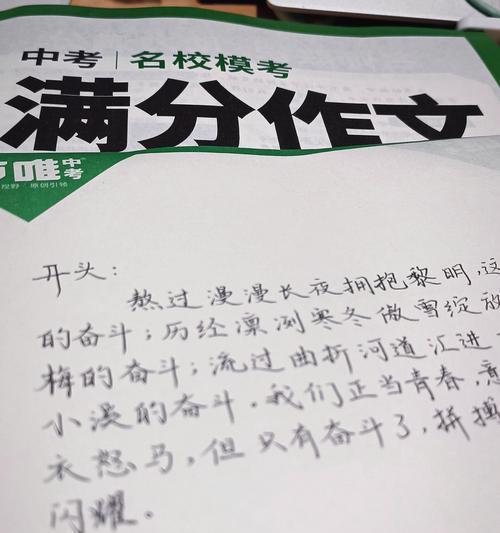 中考 名校模考
满分作文
唯 中考
视野 原创引领
开头：
熬过漫漫长夜拥抱黎明，这
的奋斗；历经凛冽寒冬傲雪绽放
梅的奋斗；流过曲折河道汇进
小溪的奋斗。我们正当青春，
衣怒马，但只有奋斗了，拼搏
闪耀。